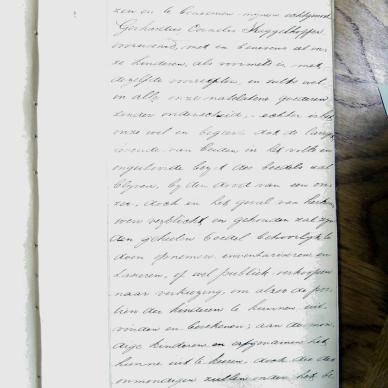 zen en te benoemen mynen echtgenoot
Gerhardus Cornelis Kuggelhoffer
voornoemd, met en benevens al on-
ze kinderen, als voormeld in met
dezelfde voorrechten, en zulks wel
in alle onze nalatene goederen
zonder onderscheid, echter is het
onze wil en begeer, dat de langst
levende van beiden in het volle en
ongestoorde bezit des boedels zal
blyven, by den dood van een on-
zer, doch in het geval van her
wen verplicht en gehouden zal zyn
den geheelen boedel behoorlyk te
doen opnemen, inventariseren en
taxeren, of wel publiek verkoopen
naar verkiezing, om alzoo de por-
tien der kinderen te kunnen uit
vinden en berekenen; aan de mon
dige kinderen en afgenamen het
hunne uit te keeren, doch die der
onmondigen zullen onder het be